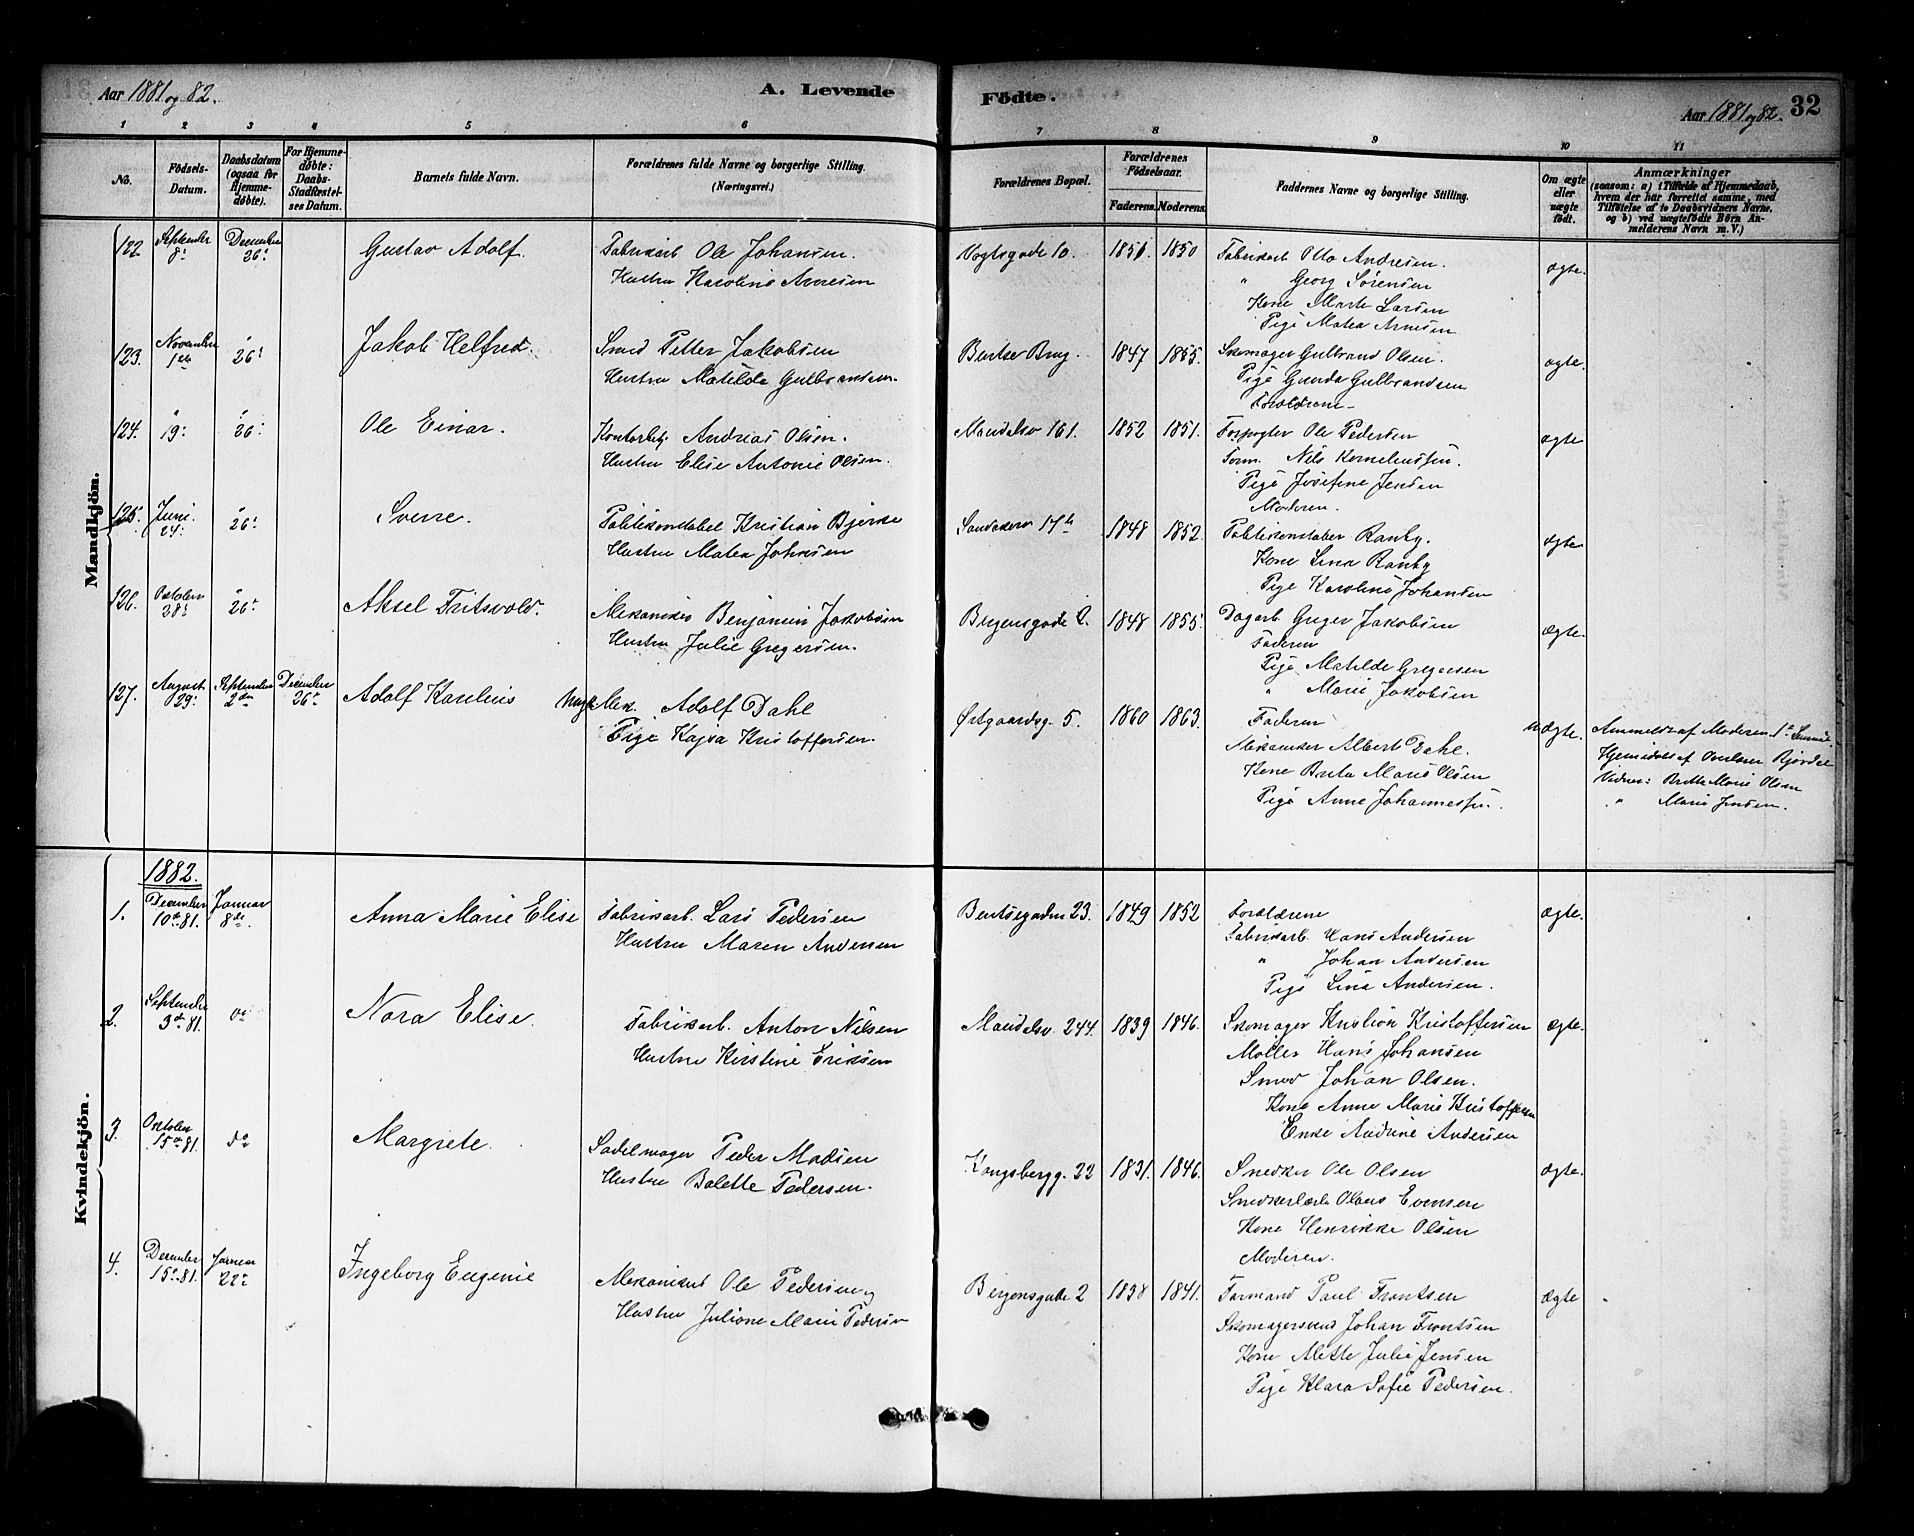 Aar 1881 og 82.
A. Levende Födte.
Aar 1881 og 82. 32
1 2 3 4 5 6 7 8 9 10 11
No.
Födsels-Datum.
Daabsdatum (ogsaa for Hjemme-døbte).
For Hjemme-døbte: Daabs-Stadfæstel-ses Datum.
Barnets fulde Navn.
Forældrenes fulde Navne og borgerlige Stilling. (Næringsvei.)
Forældrenes Bopæl.
Forældrenes Födselsaar. Faderens. Moderens.
Faddernes Navne og borgerlige Stilling.
Om ægte eller uægte födt.
Anmærkninger (saasom: a) i Tilfælde af Hjemmedaab, hvem der har forrettet samme, med Tilföielse af to Daabsvidners Navne, og b) ved uægtefödte Börn An-melderens Navn m. V.)
Mandkjön.
122. September 8' December 26' Gustav Adolf. Fabrikarb. Ole Johansen. Vogtsgade 10. 1851. 1850 Fabrikarb Otto Andresen. ægte.
Hustru Karoline Arnesen " Georg Sørensen
Kone Marte Larsen
Pige Matea Arnesen
123. November 1ste " 26' Jakob Helfred. Smed Petter Jakobsen Bentse Brug. 1847 1855. Skomager Gulbrand Olsen. ægte.
Hustru Matilde Gulbrandsen. Pige Gunda Gulbrandsen
Forældrene
124. " 19' " 26' Ole Einar. Kontorbetj. Andreas Olsen. Maridalsv 161. 1852 1851. Forpagter Ole Pedersen ægte
Hustru Elise Antonie Olsen. Form. Nils Korneliussen.
Pige Josefine Jensen
Moderen.
125. Juni 24' " 26' Sverre. Politikonstabel Kristian Bjerke Sandakerv 17b 1848 1852. Politikonstabel Ranby. ægte
Hustru Matea Johnsen Kone Lina Ranby
Pige Karoline Johansen
126. Oktober 28' " 26' Aksel Fritsvold. Mekaniker Benjamin Jakobsen Bergensgade 2. 1848 1855. Dagarb Greger Jakobsen Ægte
Hustru Julie Gregersen. Faderen
Pige Matilde Gregersen
" Marie Jakobsen
127. August 29' September 2den December 26' Adolf Karelius Ungk. Mek. Adolf Dahl Østgaardsg. 5. 1860 1863. Faderen uægte. Anmeldt af Moderen
Pige Kajsa Kristoffersen. Mekaniker Albert Dahl. Hjemmedøbt af Overlærer Bjørdal
Kone Berta Marie Olsen Vidner: Berthe Marie Olsen
Pige Anne Johannessen. " Marie Jensen.
Kvindekjön.
1882.
1. December 10de 81. Januar 8de. Anna Marie Elise Fabrikarb. Lars Pedersen Bentsegaden 23. 1849 1852 Forældrene ægte.
Hustru Maren Andersen Fabrikarb. Hans Andersen
" Johan Andersen
Pige Lina Andersen.
2. September 3de 81. do Nora Elise. Fabrikarb. Anton Nilsen Maridalsv 244. 1839 1846. Skomager Kristian Kristoffersen Ægte.
Hustru Kirstine Eriksen Møller Hans Johansen
Smed Johan Olsen.
Kone Anne Marie Kristoffersen
Enke Andrine Andersen
3. Oktober 15de 81. do Margrete. Sadelmager Peder Madsen Kongsbergg. 22 1831. 1846. Snedker Ole Olsen Ægte.
Hustru Bolette Pedersen. Snedkerlærl. Olaus Evensen
Kone Henrikke Olsen
Moderen.
4. December 15' 81. Januar 22' Ingeborg Eugenie Mekanikus Ole Pedersen Bergensgade 2 1838 1841. Formand Paul Frantsen Ægte
Hustru Juliane Marie Pedersen Skomagersvend Johan Frantsen
Kone Mette Julie Jensen
Pige Klara Sofie Pedersen.